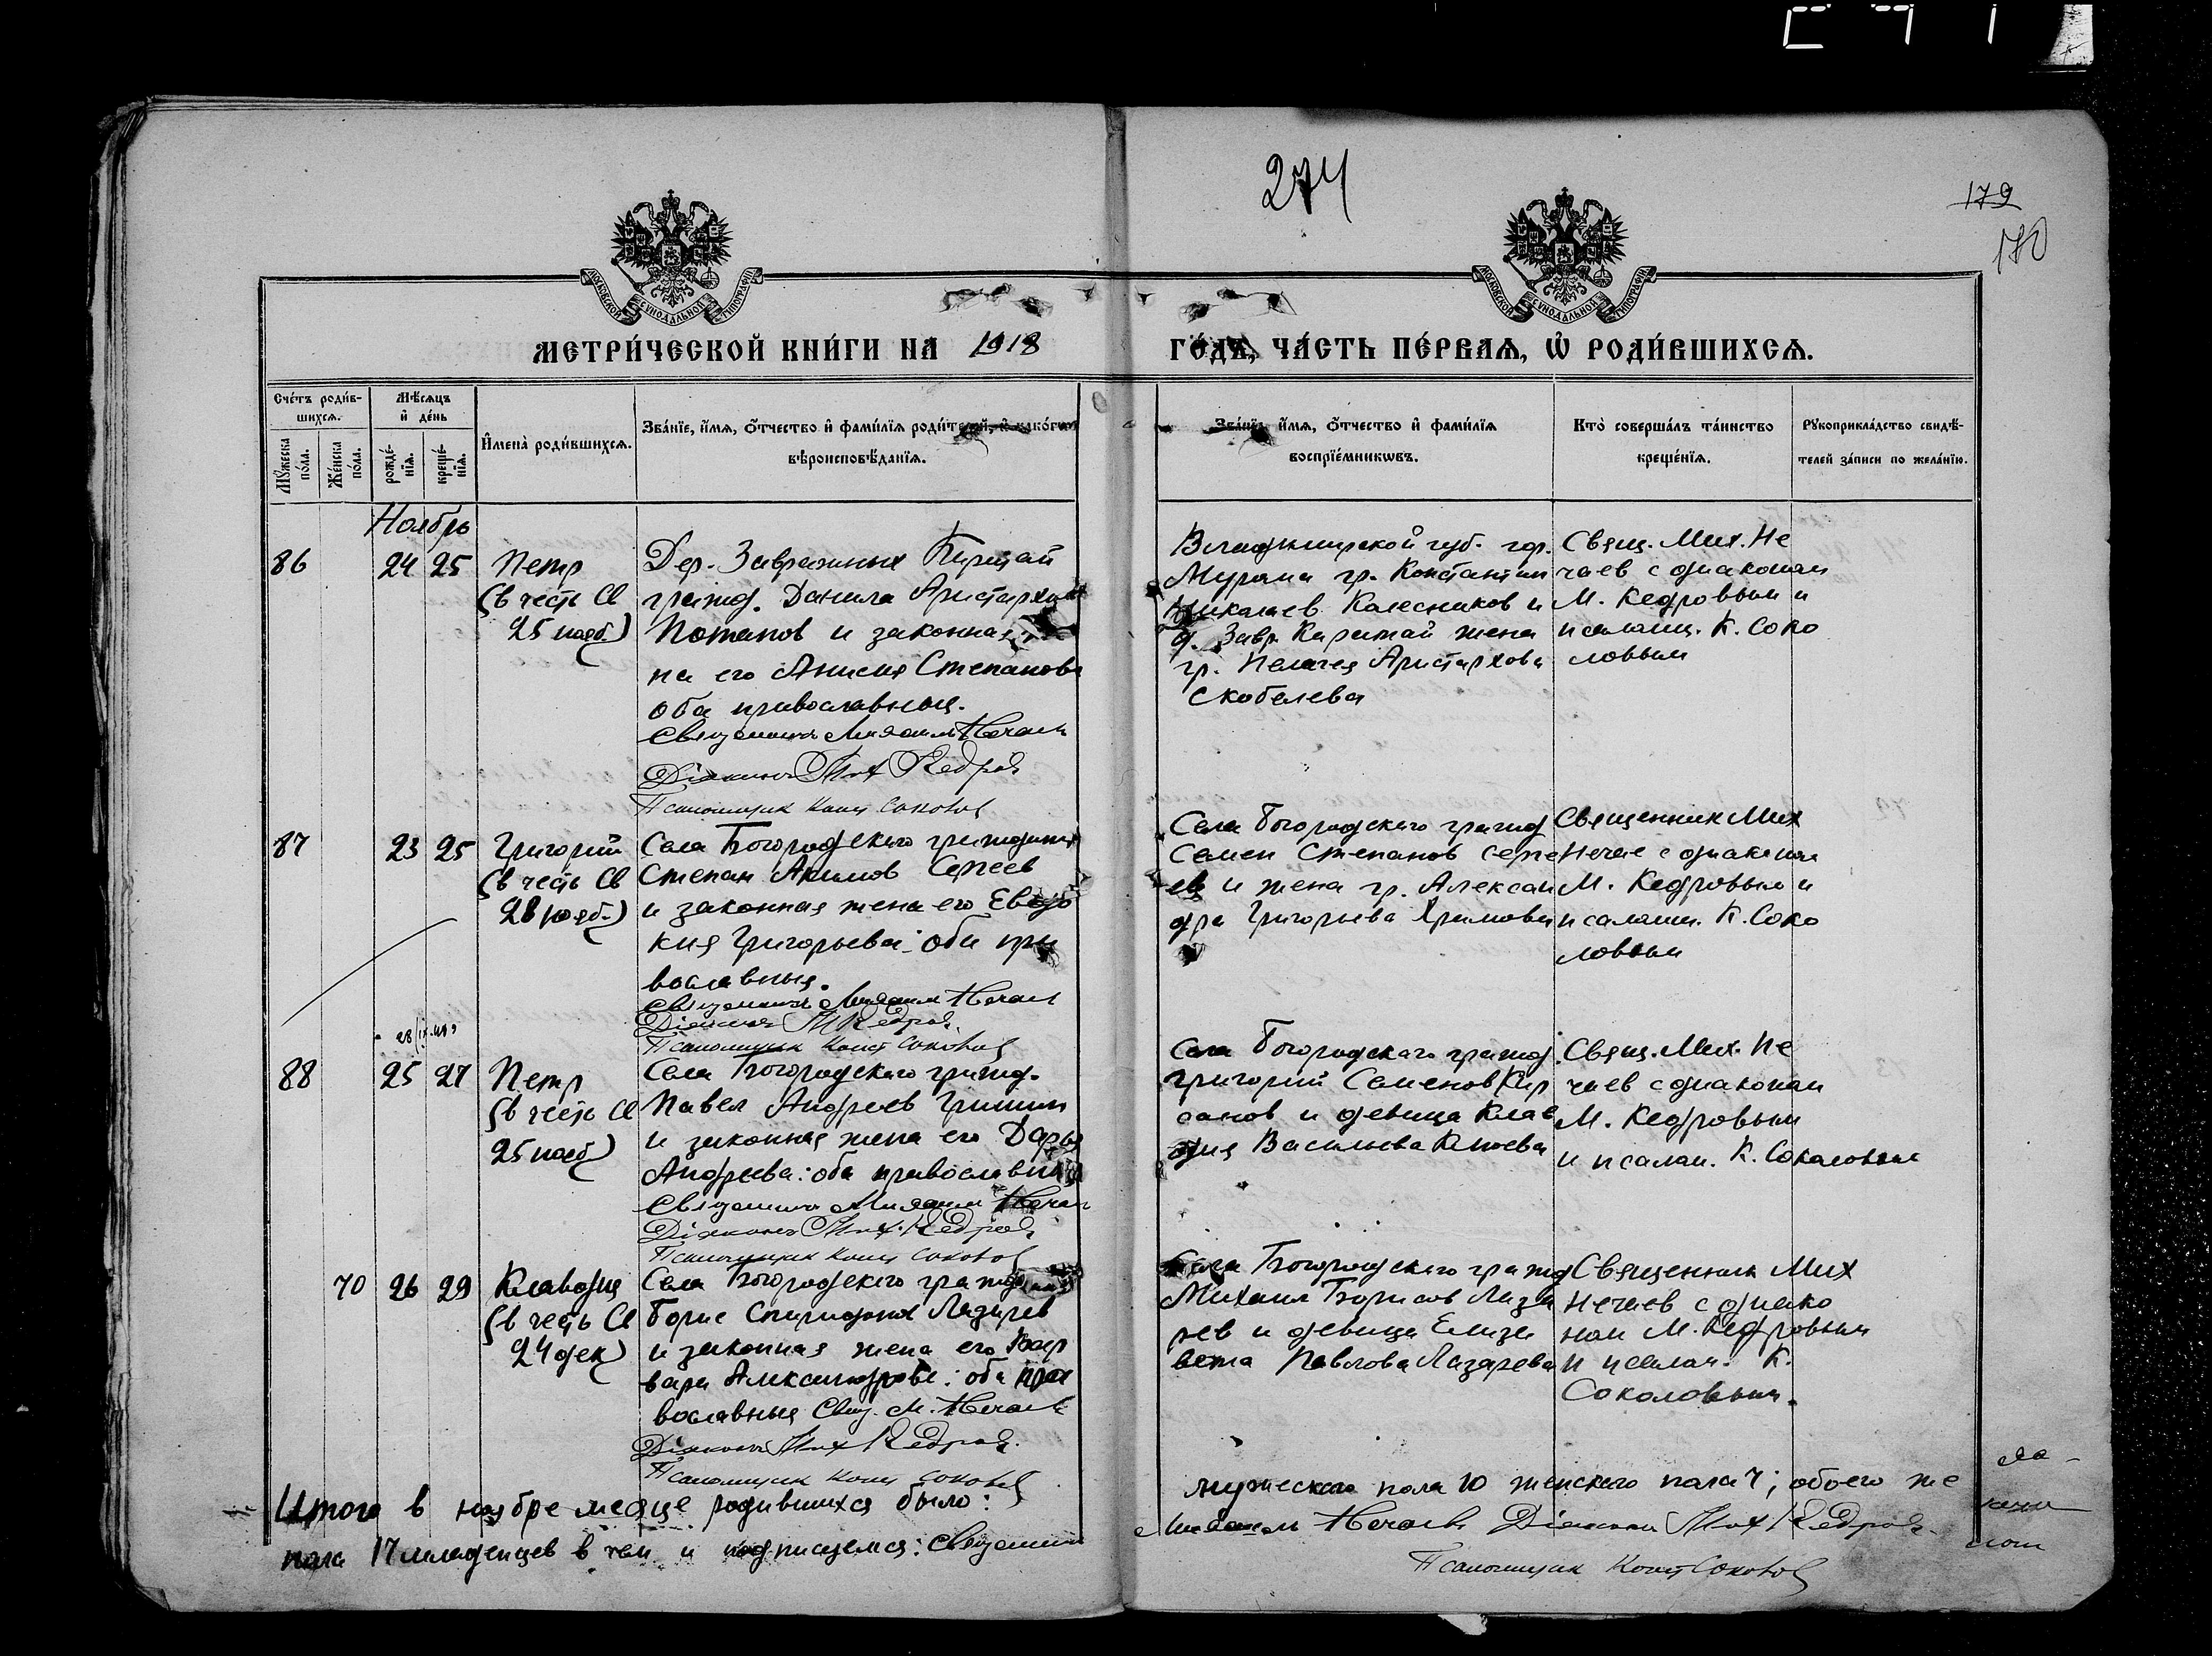 274
179
180
МОСКОВСКОЙ СУНОДАЛЬНОЙ ТИПОГРАФІИ
МОСКОВСКОЙ СУНОДАЛЬНОЙ ТИПОГРАФІИ
МЕТРИ́ЧЕСКОЙ КНИ́ГИ НА 1918
ГО́ДЪ, ЧА́СТЬ ПЕ́РВАѦ, Ѡ҆ РОДИ́ВШИХСѦ.
Сче́тъ роди́в-
шихсѧ.
Мꙋ́жеска по́ла.
Же́нска по́ла.
Мѣ́сѧцъ
и҆ де́нь
рожде́-
нїѧ.
креще́-
нїѧ.
И҆мена̀ роди́вшихсѧ.
Зва́нїе, и҆́мѧ, ѻ҆́тчество и҆ фами́лїѧ роди́телей, и҆ како́гѡ
вѣроисповѣ́данїѧ.
Зва́нїе, и҆́мѧ, ѻ҆́тчество и҆ фами́лїѧ
воспрїе́мникѡвъ.
Кто̀ соверша́лъ та́инство
креще́нїѧ.
Рꙋкоприкла́дство свидѣ́-
телей за́писи по жела́нїю.
Ноябрь
86 24 25 Петр
(в честь Св
25 нояб.)
Дер. Завражных Киржай
гражд. Данила Аристархов
Потапов и законная
на его Анисия Степанова
оба православныя.
Священник Михаил Нечаев
Діаконъ Мих Кедров
Псаломщик Конст Соколов
Владимирской губ. гор.
Мурома гр. Константин
Николаев Колесников и
д. Завр. Киржай жена
гр. Пелагея Аристархова
Скобелева
Свящ. Мих. Не
чаев с диаконом
М. Кедровым и
псаломщ. К. Соко
ловым
87 23 25 Григорий
(в честь Св
28 нояб.)
Села Богородскаго гражданин
Степан Акимов Сергеев
и законная жена его Евдо
кия Григорьева: оба пра
вославныя.
Священникъ Михаил Нечаев
Діаконъ М Кедров.
Псаломщик Конст Соколов
Села Богородскаго гражд
Семен Степанов Серге
ев и жена гр. Алексан
дра Григорьева
Священник Мих
Нечае с диаконом
М. Кедровым и
псаломщ. К. Соко
ловым
88 25 27 Петр
(в честь Св
25 нояб)
Села Богородскаго гражд.
Павел Андреев Гришин
и законная жена его Дарья
Андреева: оба православныя
Священник Михаил Нечаев
Діаконъ Мих. Кедров
Псаломщик Конст Соколов
Села Богородскаго гражд.
Григорий Семенов Кир
санов и девица Клав
дия Васильева
Свящ. Мих. Не
чаев с диаконом
М. Кедровым
и псалом. К. Соколовым
70 26 29 Клавдия
(в честь Св
24 дек)
Села Богородскаго гражданин
Борис Спиридонов Лазарев
и законная жена его Вар
вара Александрова: оба пра
вославныя Свящ. М. Нечаев
Діаконъ Мих Кедров.
Псаломщик Конст Соколов
Села Богородскаго гражд
Михаил Борисов Лаза
рев и девица Елиза
вета Павлова Лазарева
Священник Мих
Нечаев с диако
ном М. Кедровым
и псалом. К.
Соколовым.
Итого в ноябре месяце родившихся было:
мужеского пола 10 женского пола 7; обоего же
пола 17 младенцев в чем и подписуемся: Священник
Михаилъ Нечаев Діаконъ Мих Кедров.
Псаломщик Конст Соколов